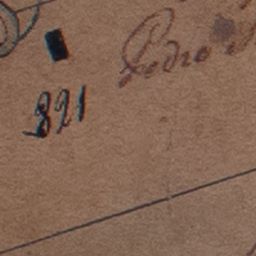 Pedro
821